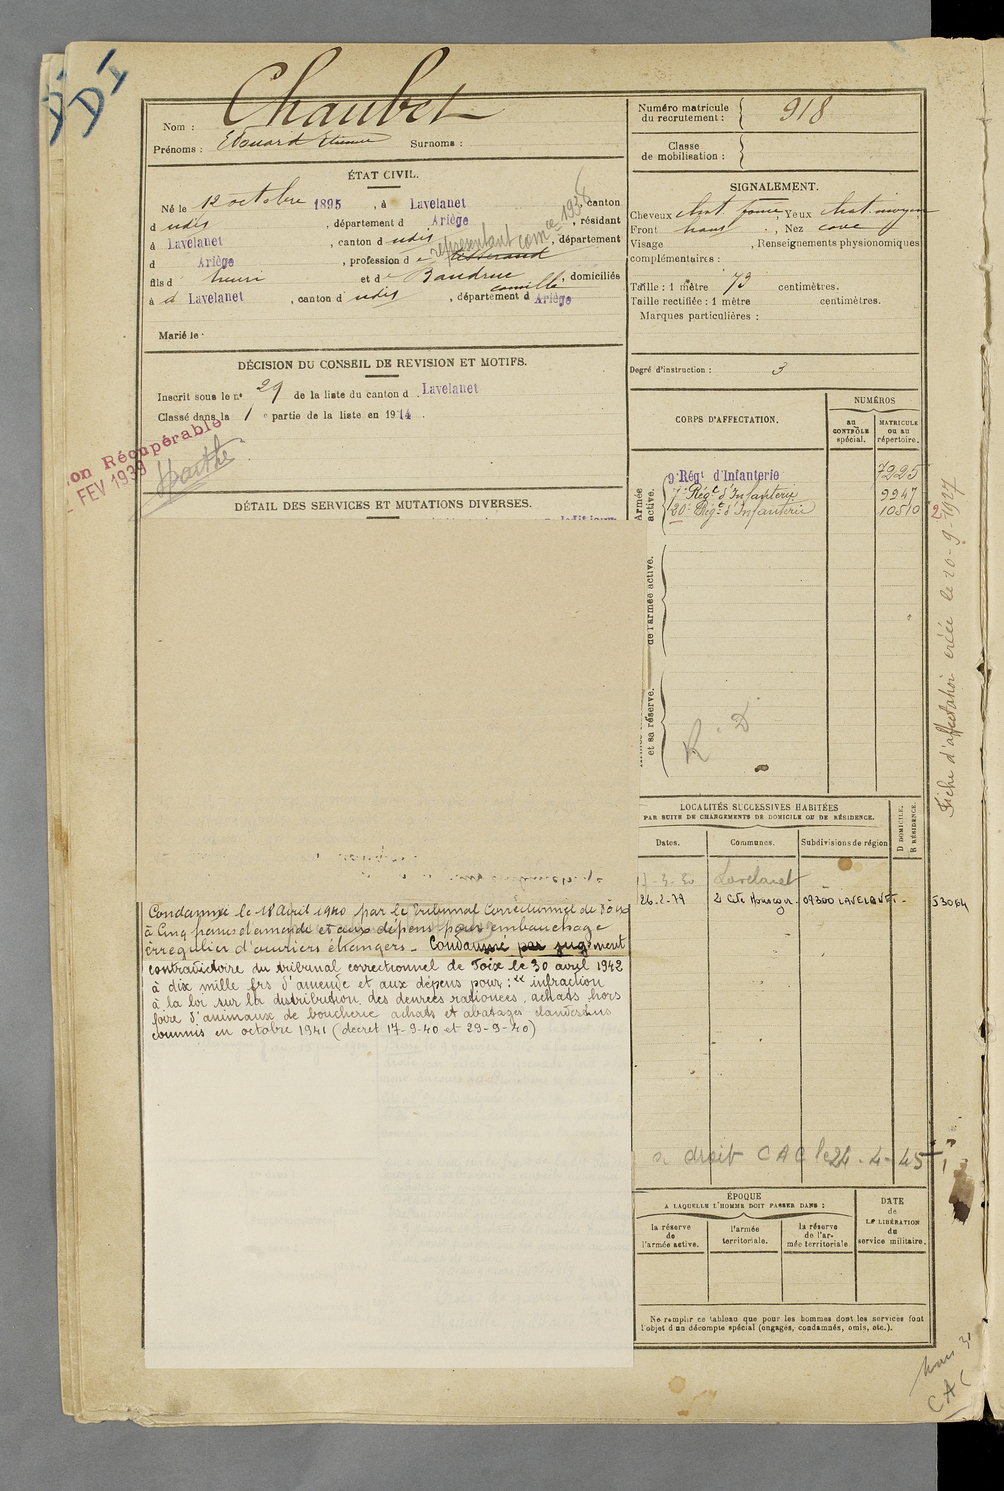 DI
Nom : Chaubet
Prénoms : Edouard Etienne Surnoms :
Numéro matricule
du recrutement : 918
Classe
de mobilisation :
ÉTAT CIVIL.
Né le 12 octobre 1895, à Lavelanet canton
d udis, département d Ariège, résidant
à Lavelanet, canton d udis, département
représentant com ce 1938
d Ariège, profession de tisserand
fils d henri et de Baudruc, domiciliés
camille
à d Lavelanet, canton d udis, département d Ariège
Marié le
SIGNALEMENT.
Cheveux chat foncé, Yeux chat moyen
Front haut, Nez cave
Visage , Renseignements physionomiques
complémentaires :
Taille : 1 mètre 73 centimètres.
Taille rectifiée : 1 mètre centimètres.
Marques particulières :
Degré d'instruction : 3
DÉCISION DU CONSEIL DE REVISION ET MOTIFS.
Inscrit sous le n° 29 de la liste du canton d Lavelanet
Classé dans la 1e partie de la liste en 1914.
on Récupérable
FEV 1939
DÉTAIL DES SERVICES ET MUTATIONS DIVERSES.
CORPS D'AFFECTATION.
NUMÉROS
au
CONTRÔLE
spécial.
MATRICULE
ou au
répertoire.
Armée
active.
9e Régt d'Infanterie 7225
7e Régt d'Infanterie 9947
20e Régt d'Infanterie 10510
de l'armée active.
et sa réserve.
R. D
2
Fiche d'affectation créée le 20-9-1927
LOCALITÉS SUCCESSIVES HABITÉES
PAR SUITE DE CHANGEMENTS DE DOMICILE OU DE RÉSIDENCE.
Dates.
Communes.
Subdivisions de région
D DOMICILE.
R RÉSIDENCE.
Lavelanet
26-2-79 09300 LAVELANET-
Condamné le 18 Avril 1940 par le Tribunal Correctionnel de Foix
à Cinq francs d'amende et aux dépens pour embauchage
irrégulier d'ouvriers étrangers - Condamné par jugement
contradictoire du tribunal correctionnel de Foix le 30 avril 1942
à dix mille frs d'amende et aux dépens pour : "infraction
à la loi sur la distribution des denrées rationées, achats hors
foire d'animaux de boucherie achats et abatages clandestins
commis en octobre 1941 (décret 17-9-40 et 29-9-40)
a droit CAC le 24-4-45
ÉPOQUE
A LAQUELLE L'HOMME DOIT PASSER DANS :
la réserve
de
l'armée active.
l'armée
territoriale.
la réserve
de l'ar-
mée territoriale
DATE
de
LA LIBÉRATION
du
service militaire.
Ne remplir ce tableau que pour les hommes dont les services font
l'objet d'un décompte spécial (engagés, condamnés, omis, etc.).
CAC